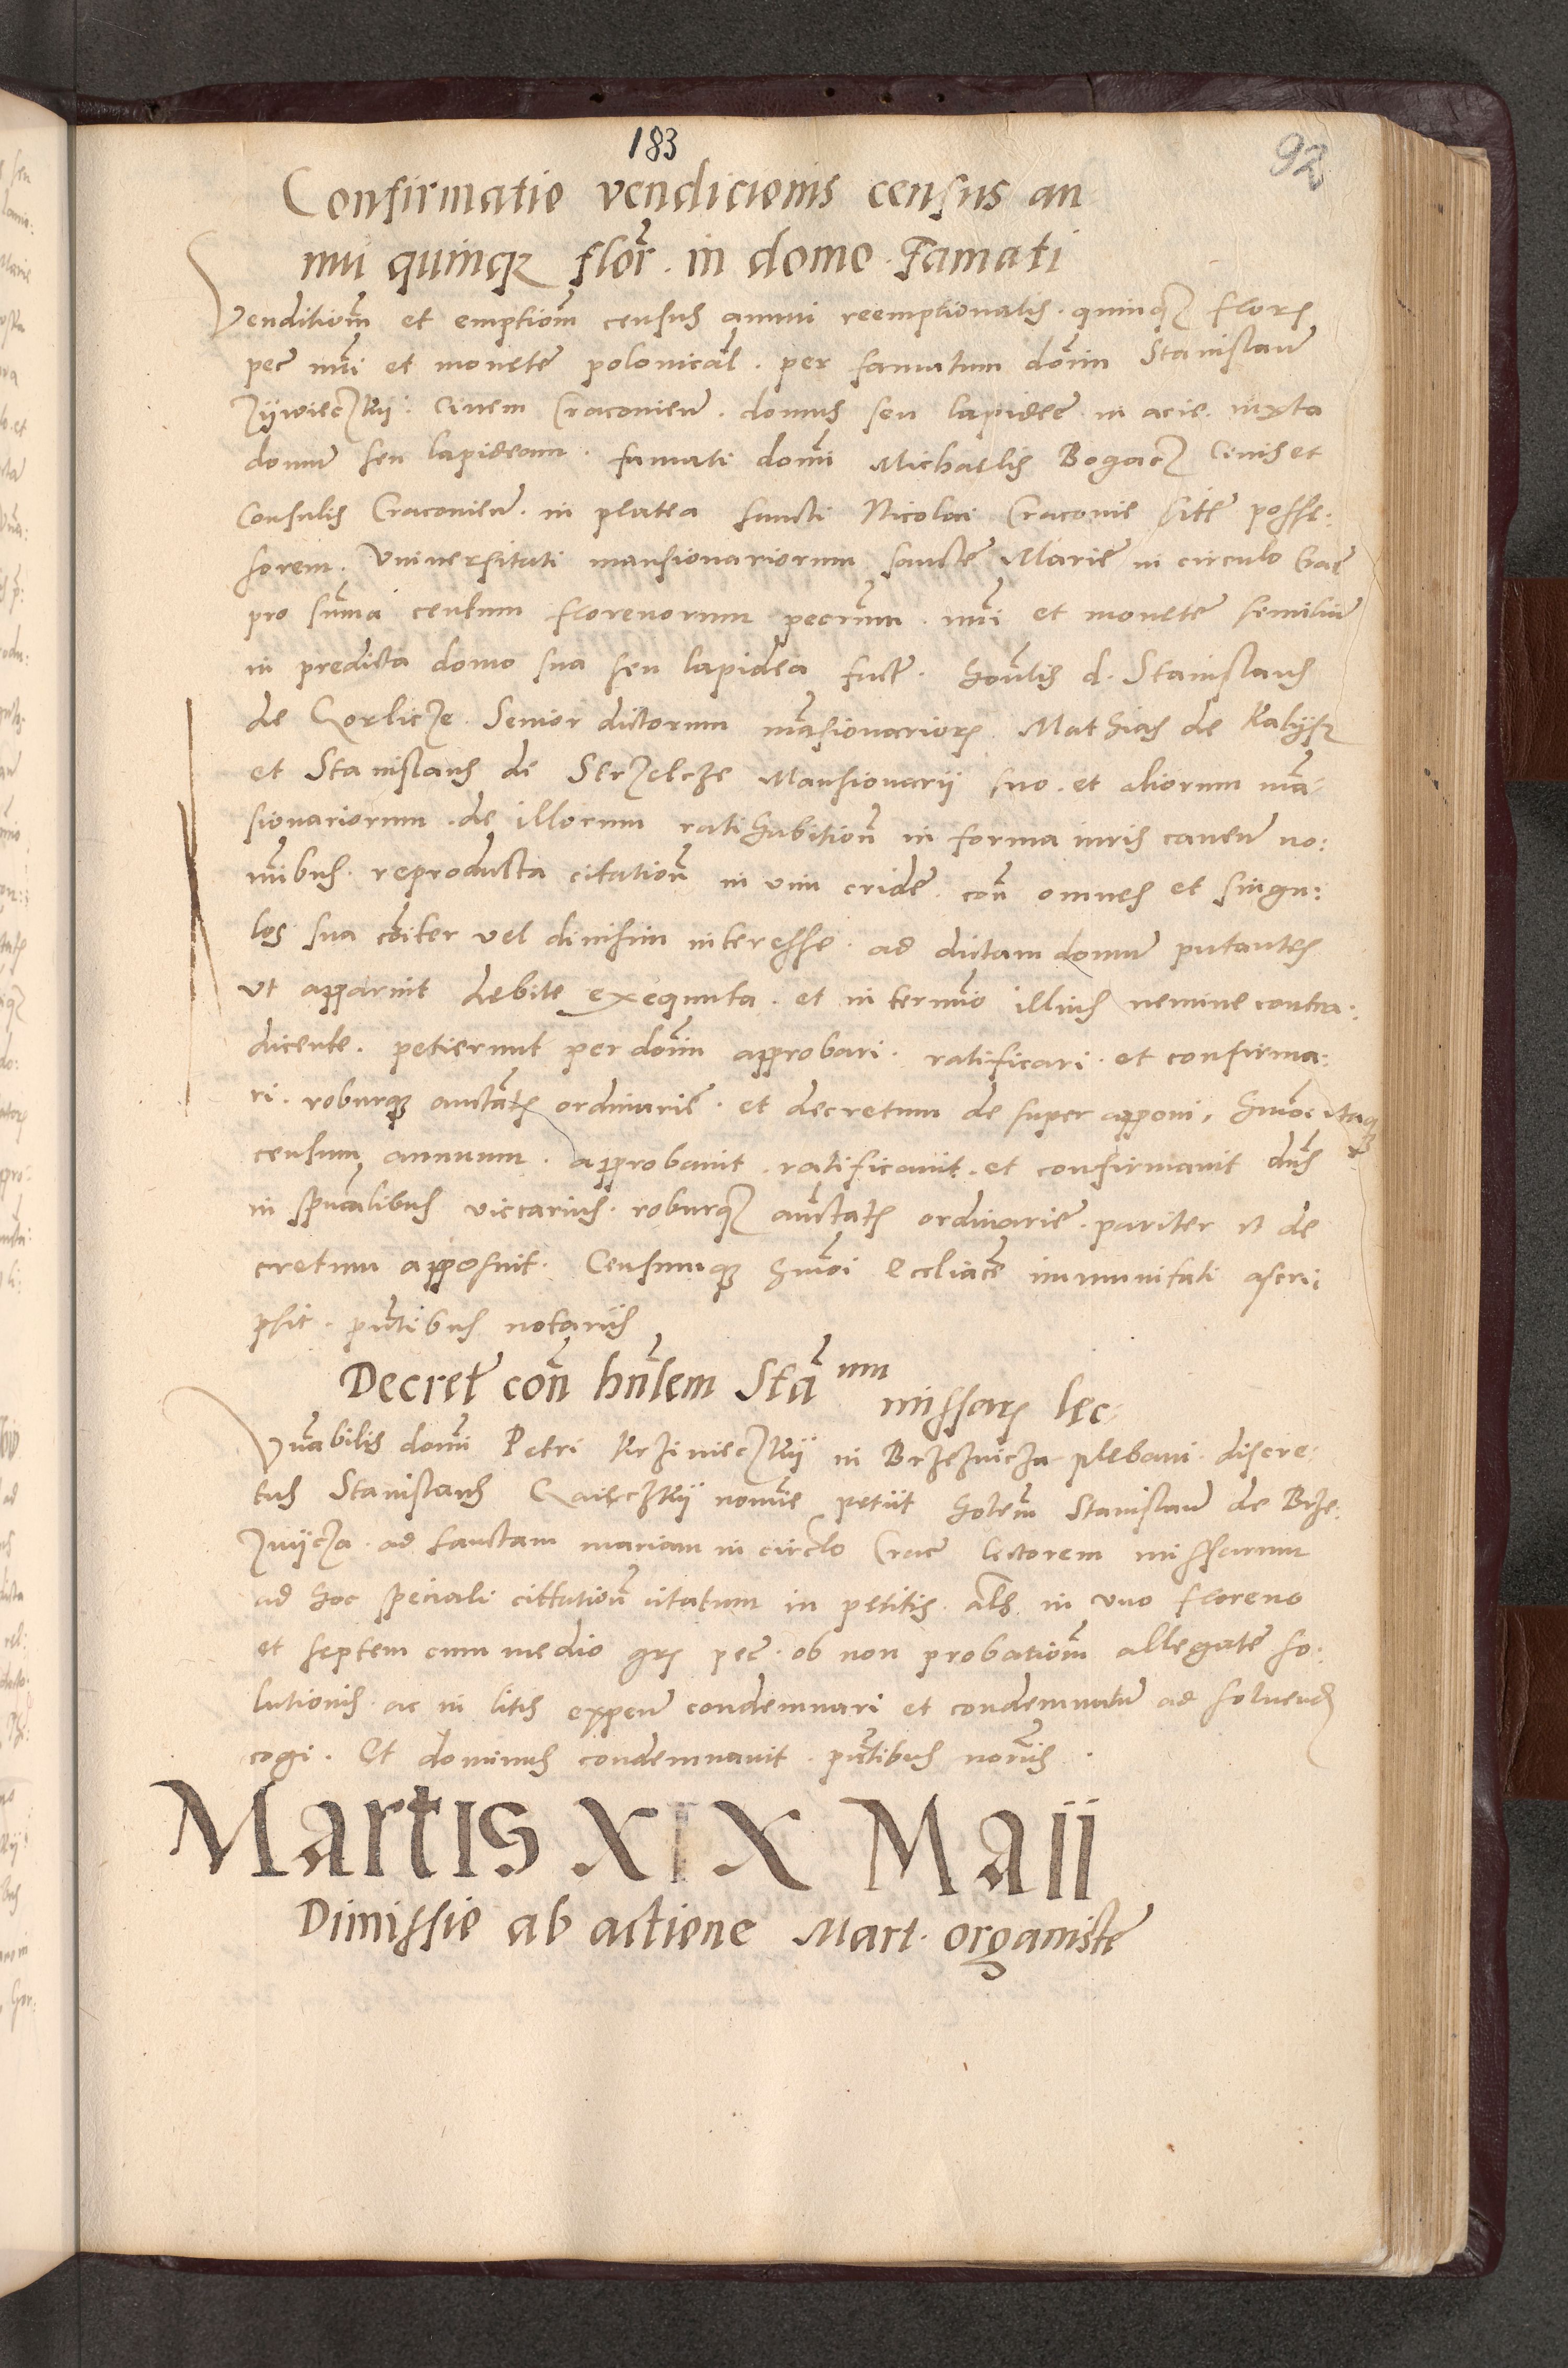 183
92
Confirmatio vendicionis census an
nui quinqȝ flor̃. in domo. Famati
Venditiom̃ et emptiom̃ census annui reemptionalis. quinqȝ floreȝ
pec̃ nui et monete polonicãl. per famatum dom̃in Stanislau̅
Zÿwieczkÿ. Ciuem Cracouien̄. domus seu lapidee in acie. iuxta
domu̅ seu lapideam. famati domi̅ Michaelis Bogacz Ciuis et
Consulis Cracouien̄. in platea sancti Nicolai Cracouie site posse:
sorem. Vniuersitati mansionariorum sancte Marie in circulo Crac̄
pro summa centum florenorum pecu̅ium. nui et monete similiu̅
in predicta domo sua seu lapidea fact̄. Hon̄lis d. Stanislaus
de Gorlicze. Senior dictorum mãsionarioȝ Mathias de Kalÿsȝ
et Stanislaus de Strzelcze Mansionarii suo. et aliorum mã
sionariorum. de illorum ratihabition̄ in forma iuris cauen̄ no:
nibus. reproducta citation̄ in vim cride. con̄ omnes et singu:
los sua cõiter vel diuisim interesse. ad dictam domu̅ putantes
vt apparuit debite exequuta. et in termino illius nemine contra:
dicente. petierunt per dom̄in approbari. ratificari. et confirma:
ri. roburqȝ auctatȝ ordinarie. et decretum de super apponi. Hm̃oi itaqȝ
censum annuum. approbauit. ratificauit. et confirmauit dn̄s
in spu̅alibus viccarius. roburqȝ auctatȝ ordinarie. pariter et de
cretum apposuit. Censumqȝ hm̃oi Eccliãce immunitati ascri
psit. pn̄tibus notariis
Decret̄ con̄ hn̄lem Stã um
missaȝ lec
Vn̄abilis domi̅ Petri Krziniec̄zkÿ in Brzeznicza plebani. discre
tus Stanislaus Gaieczkÿ nomine petiit Hon̄lem Stanislau̅ de Brze
znÿcza. ad sanctam mariam in circulo Crac̄ lectorem missarum
ad hoc speciali cittation̄ citatum in petitis. als̄ in vno floreno
et septem cum medio grȝ pec̄. ob non probatiom̃ allegate so:
lutionis. ac in litis expen̄ condemnari et condemnatu̅ ad soluendȝ
cogi. Et dominus condemnauit. pn̄tibus nor̄iis.
Martis XIX Maii
Dimissio ab actione Mart. organiste